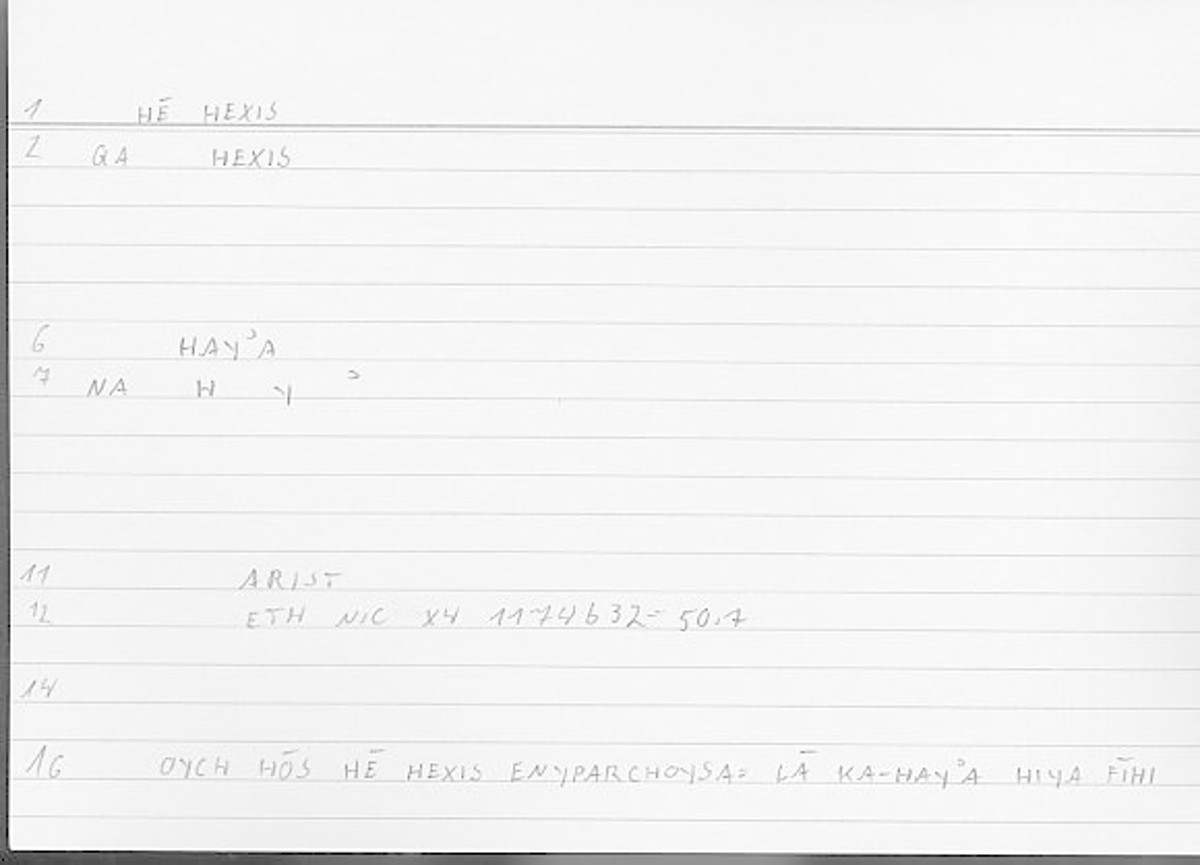 1 HĒ HEXIS
2 QA HEXIS
6 HAYʾA
7 NA H Y ʾ
11 ARIST
12 ETH NIC X4 1174b32= 50.7
14
16 OYCH HŌS HĒ HEXIS ENYPARCHOYSA= LĀ KA-HAYʾA HIYA FĪHI